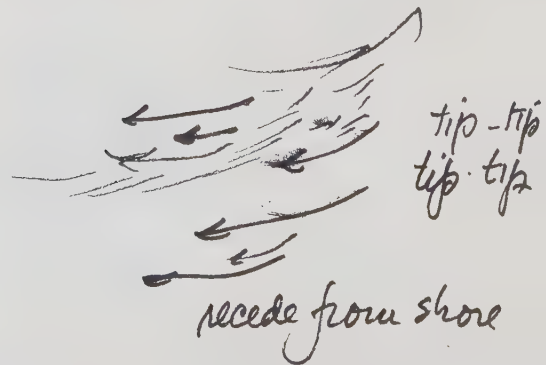 tip - tip
tip · tip
recede from shore